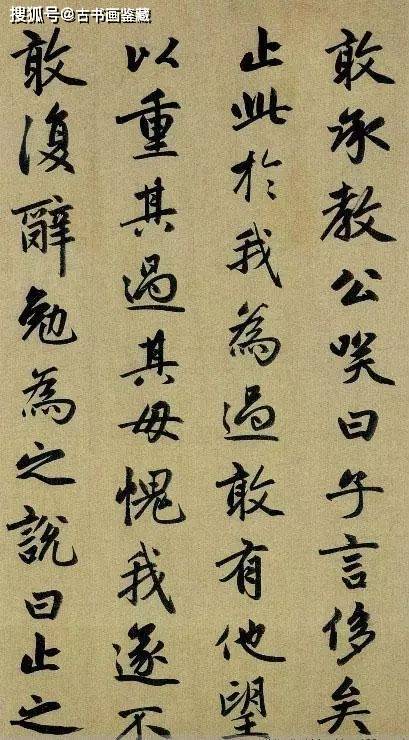 搜狐号@古书画鉴藏
敢承教公笑曰子言侈矣
止此於我為過敢有他望
以重其過其毋愧我遂不
敢復辭勉為之說曰止之